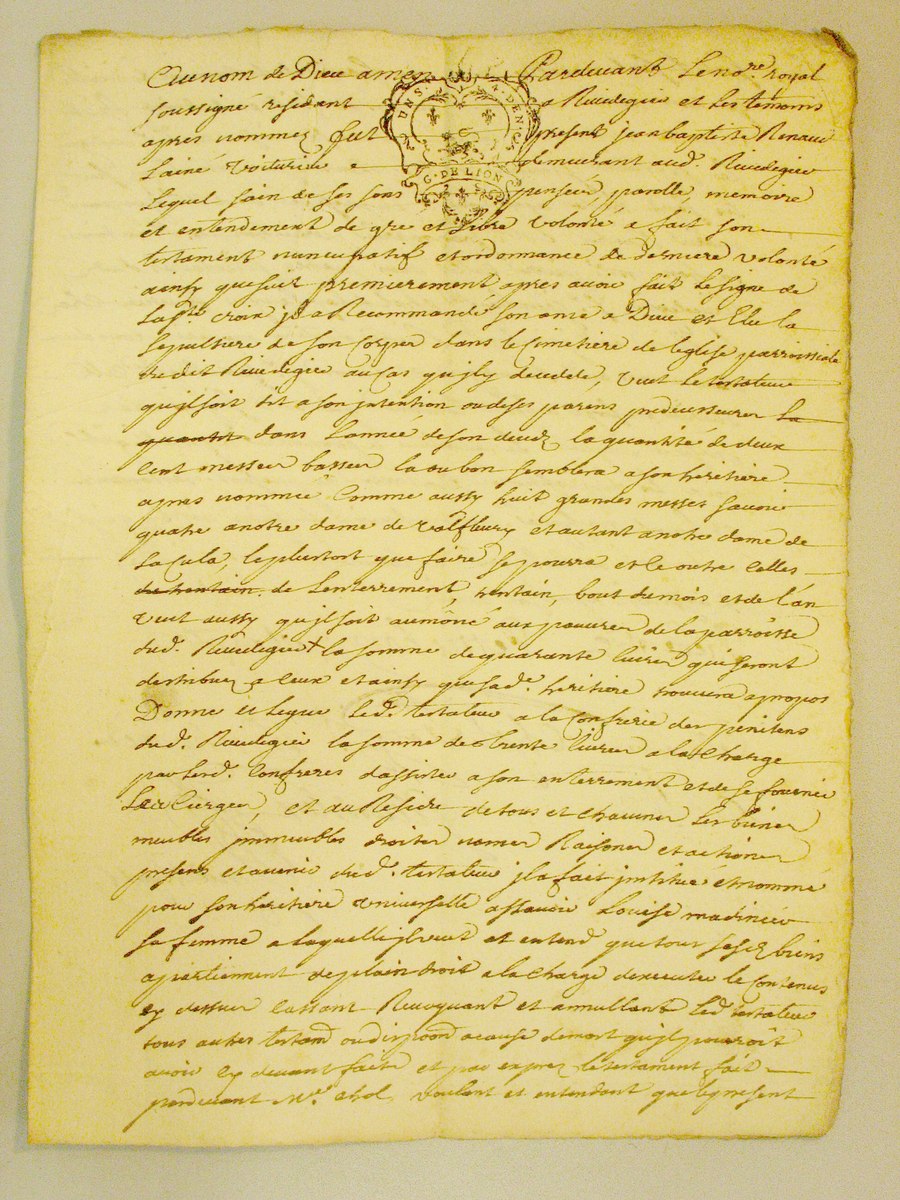 Au nom de Dieu amen Pardevant Le no.re royal
soussigné résidant a Rivedegier et Les témoins
apres nommez fut present jean baptiste Renaud
Lainé voiturier demeurant aud. Rivedegier
Lequel sain de ses sens pensée, parolle, memoire
et entendement de gre et Libre volonté a fait son
testament nuncupatif et ordonnance de derniere volonté
ainsy que suit premierement apres avoir fait Le signe de
La ste croix jl a Recommandé son ame a Dieu et Elu la
sepulture de son Corps dans le Cimetiere de leglise parroissiale
dudit Rivedegier au Cas qu'jl y decede, veut Le testateur
qu'jl soit dit a son jntention ou de ses parens predecesseurs La
quantité dans Lannée de son deced la quantité de deux
Cent messes basses la ou bon semblera a son héritiere
apres nommée Comme aussy huit grandes messes savoir
quatre a notre dame de valfleury et autant a notre dame de
La Cula, le plustort que faire se pourra et le outre Celles
du trentain de Lenterrement, trentain, bout du mois et de l'an
veut aussy qu'jl soit aumôné aux pauvres de la parroisse
dud. Rivedegier la somme de quarante livres qui seront
distribuez a Ceux et ainsy que sad.e heritiere trouvera apropos
Donne et Legue Led.t testateur a la Confrerie des penitens
dud. Rivedegier la somme de trente livres a la Charge
par Lesd. Confreres dassister a son enterrement et de se fournir
Les Cierges, et au Residu de tous et Chacuns Les biens
meubles jmmeubles droits noms Raisons et actions
presens et avenir dud. testateur jl a fait jnstitué et nommé
pour son héritiere universelle assavoir Louise
sa femme a laquelle jl veut et entend que tous sesd biens
apartiennent de plain droit a la Charge dexecuter le Contenus
Cy dessus Cassant Revoquant et annullant Led. testateur
tous autres testamd ou disposond a cause de mort qu'jl pouroit
avoir Cy devant faits et par expres le testament fait
pardevant M.e Chol, voulant et entendant que le present
UNS. 4. DEN.
G. DE LION